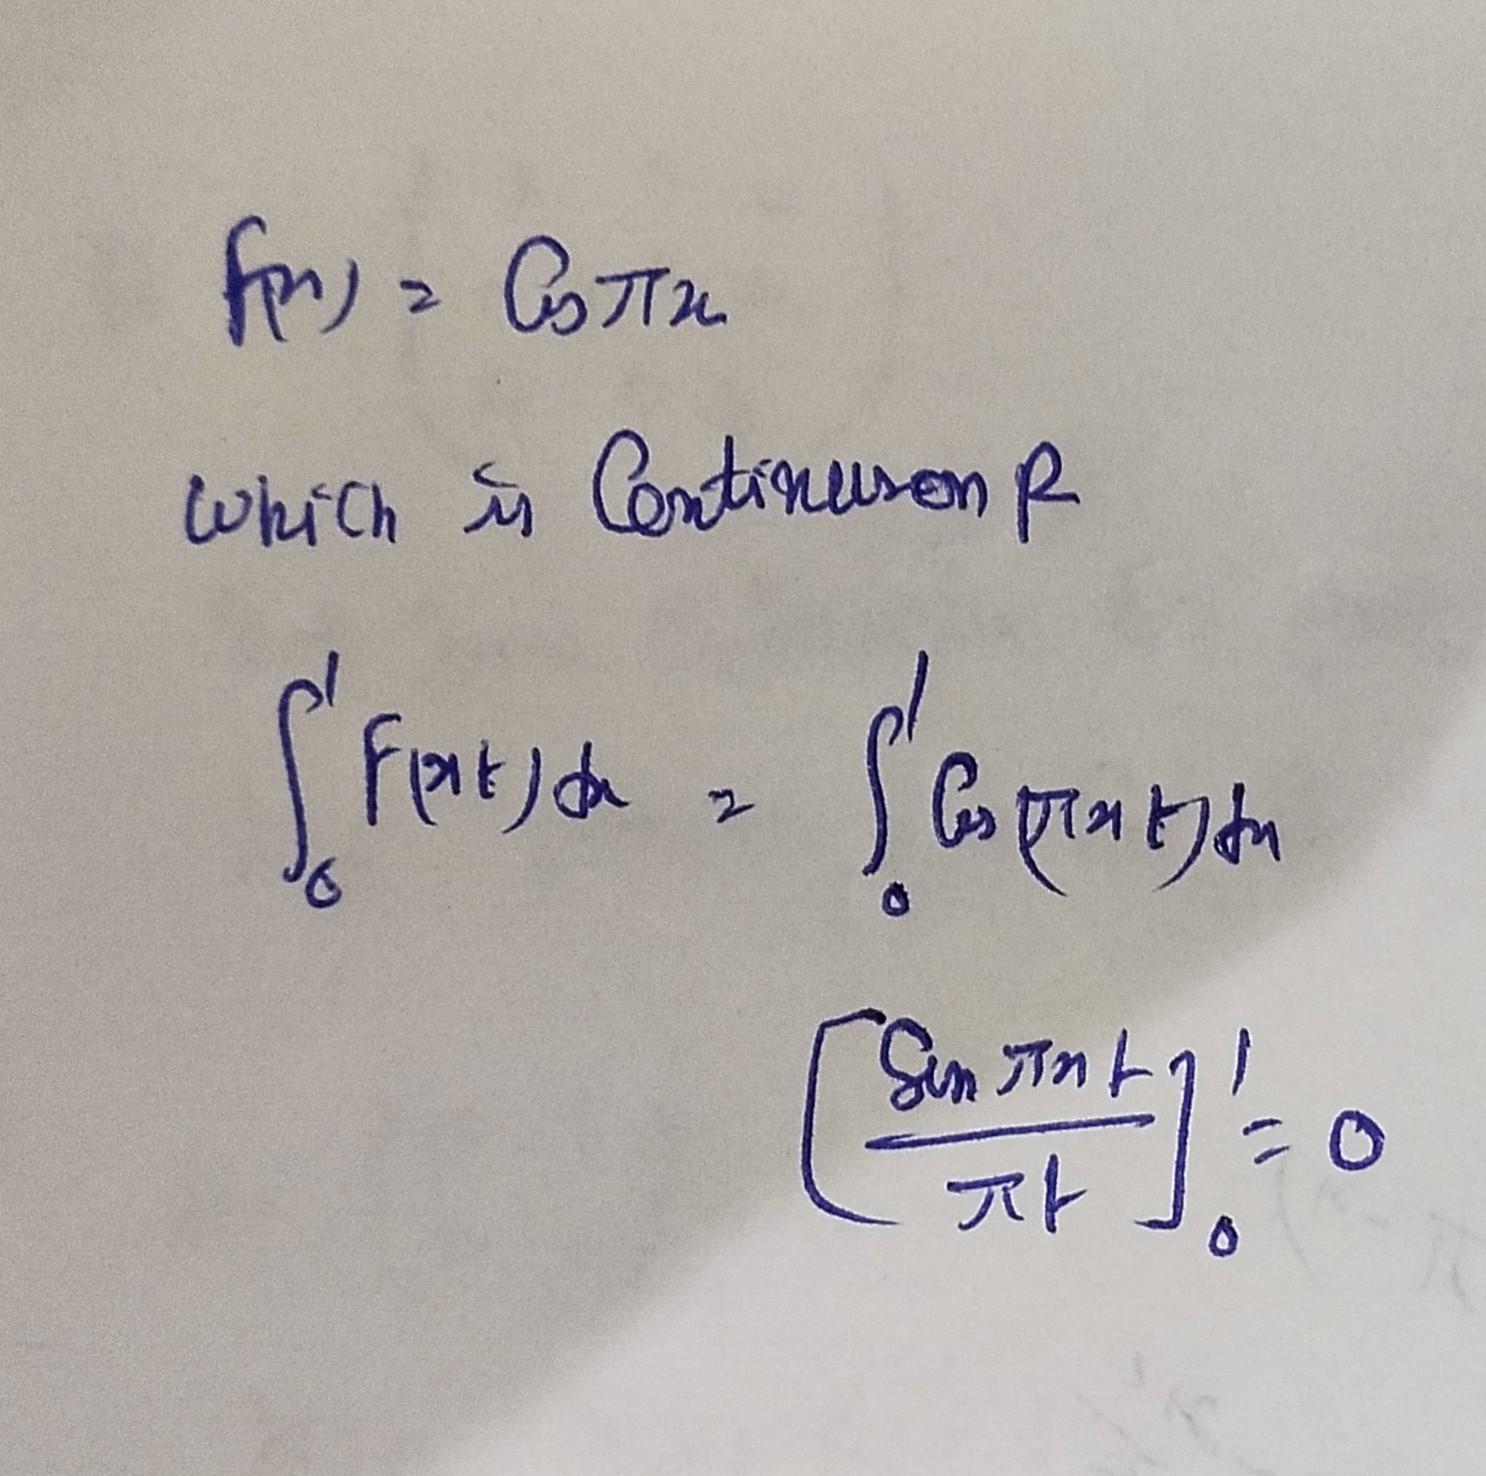 f(x) = Cos πx
which is Continuous on R
∫₀¹ F(xt) dx = ∫₀¹ Cos (πxt) dx
[Sin πxt / πt]₀¹ = 0